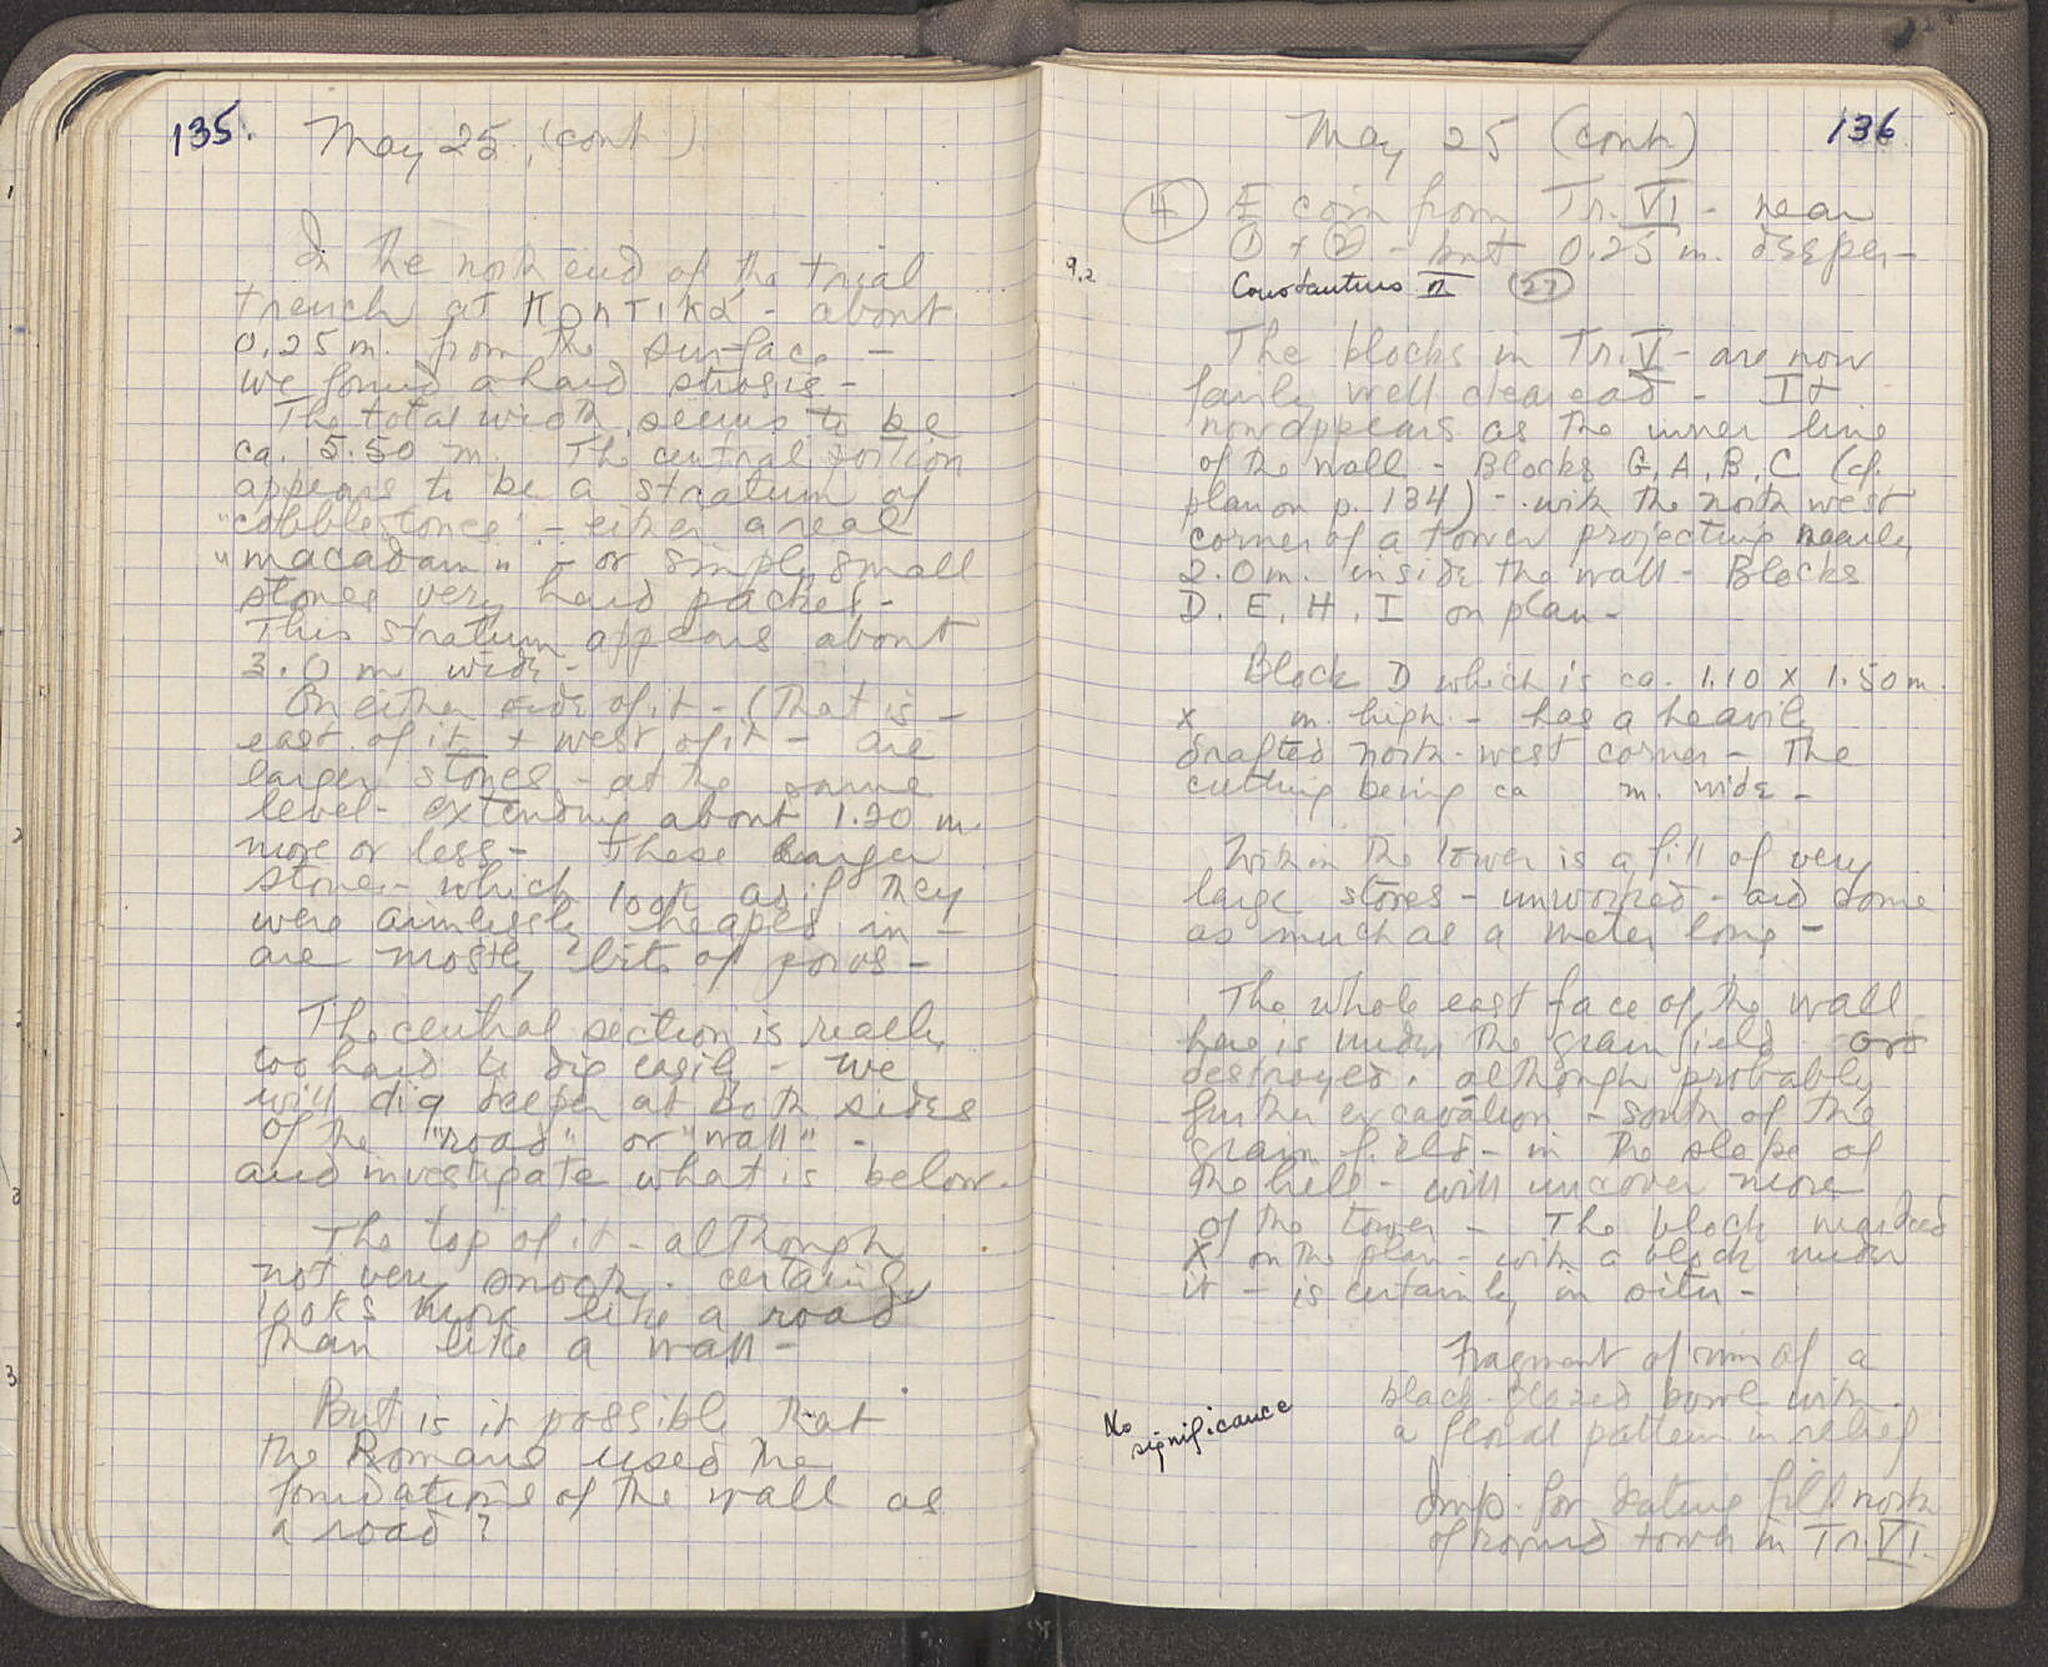 135.
May 25, (cont.)
In the north end of the trial
trench at Κρητικά - about
0.25 m. from the surface -
we found a hard strosis -
The total width seems to be
ca. 5.50 m. The central portion
appears to be a stratum of
"cobblestones" - either a real
"macadam" - or simply small
stones very hard packed -
This stratum appears about
3.0 m wide -
On either side of it - (that is -
east of it + west of it - are
larger stones - at the same
level - extending about 1.20 m.
more or less - These larger
stones - which look as if they
were aimlessly heaped in -
are mostly bits of poros -
The central section is really
too hard to dig easily - we
will dig deeper at both sides
of the "road" or "wall" -
and investigate what is below.
The top of it - although
not very smooth - certainly
looks more like a road
than like a wall -
But is it possible that
the Romans used the
foundations of the wall as
a road?
May 25 (cont.)
136
4 Æ coin from Tr. VI - near
① + ② - but 0.25 m. deeper -
9.2
Constantius II 27
The blocks in Tr. V - are now
fairly well cleared - It
now appears as the inner line
of the wall - Blocks G, A, B, C (cf.
plan on p. 134) - with the north west
corner of a tower projecting nearly
2.0 m. inside the wall - Blocks
D, E, H, I on plan -
Block D which is ca. 1.10 x 1.50 m.
x m. high - has a heavily
drafted north-west corner - The
cutting being ca m. wide -
Within the tower is a fill of very
large stones - unworked - and some
as much as a meter long -
The whole east face of the wall
here is under the grain field or
destroyed, although probably
further excavation - south of the
grain field - in the slope of
the hill - will uncover more
of the tower - The block marked
X on the plan - with a block under
it - is certainly in situ -
Fragment of rim of a
black-glazed bowl with
a floral pattern in relief
No
significance
Imp. for dating fill north
of round tower in Tr. VI.